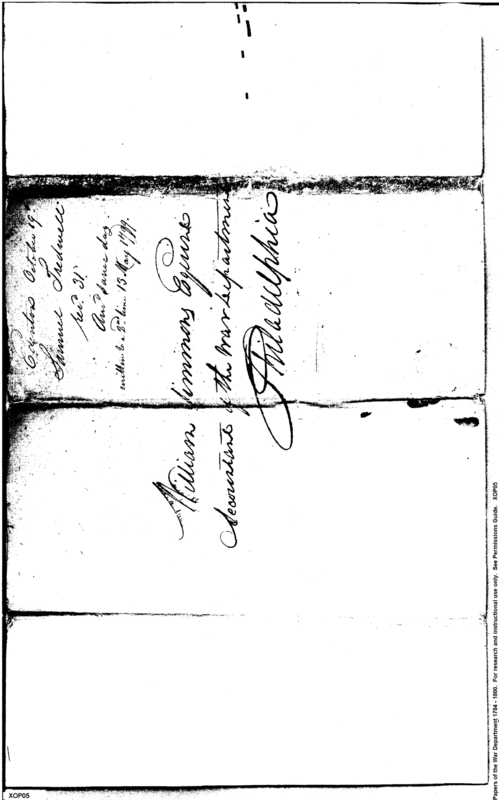 October 19
Samuel Tredwell
rec. 31.
Ans. same day
written to a 2d time 13 May 1799.
William Simmons Esquire
Accountant of the War Department
Philadelphia
XOP05
Papers of the War Department 1784 - 1800. For research and instructional use only. See Permissions Guide. XOP05